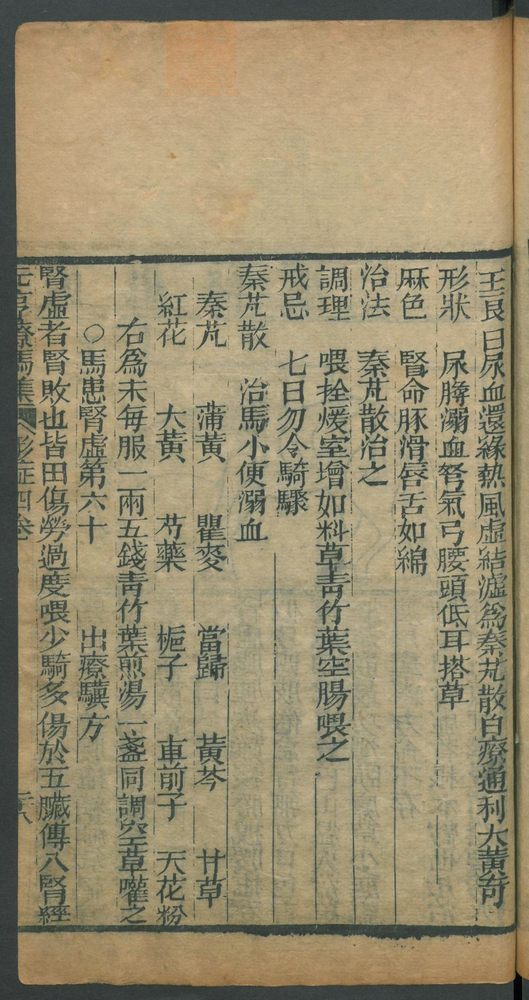 王良曰尿血還緣熱風虛結瀘爲秦艽散自療通利大黃奇
形狀　尿脬溺血弩氣弓腰頭低耳搭草
麻色　腎命脉滑唇舌如綿
治法　秦艽散治之
調理　喂拴煖室增如料草青竹葉空腸喂之
戒忌　七日勿令騎驟
秦艽散　治馬小便溺血
秦艽　蒲黃　瞿麥　當歸　黃芩　甘草
紅花　大黃　芍藥　梔子　車前子　天花粉
右爲末每服一兩五錢青竹葉煎湯一盞同調空草嚾之
○馬患腎虛第六十　出療驥方
腎虛者腎敗也皆田傷勞過度喂少騎多傷於五臟傳八腎經
元亨療馬集　四卷